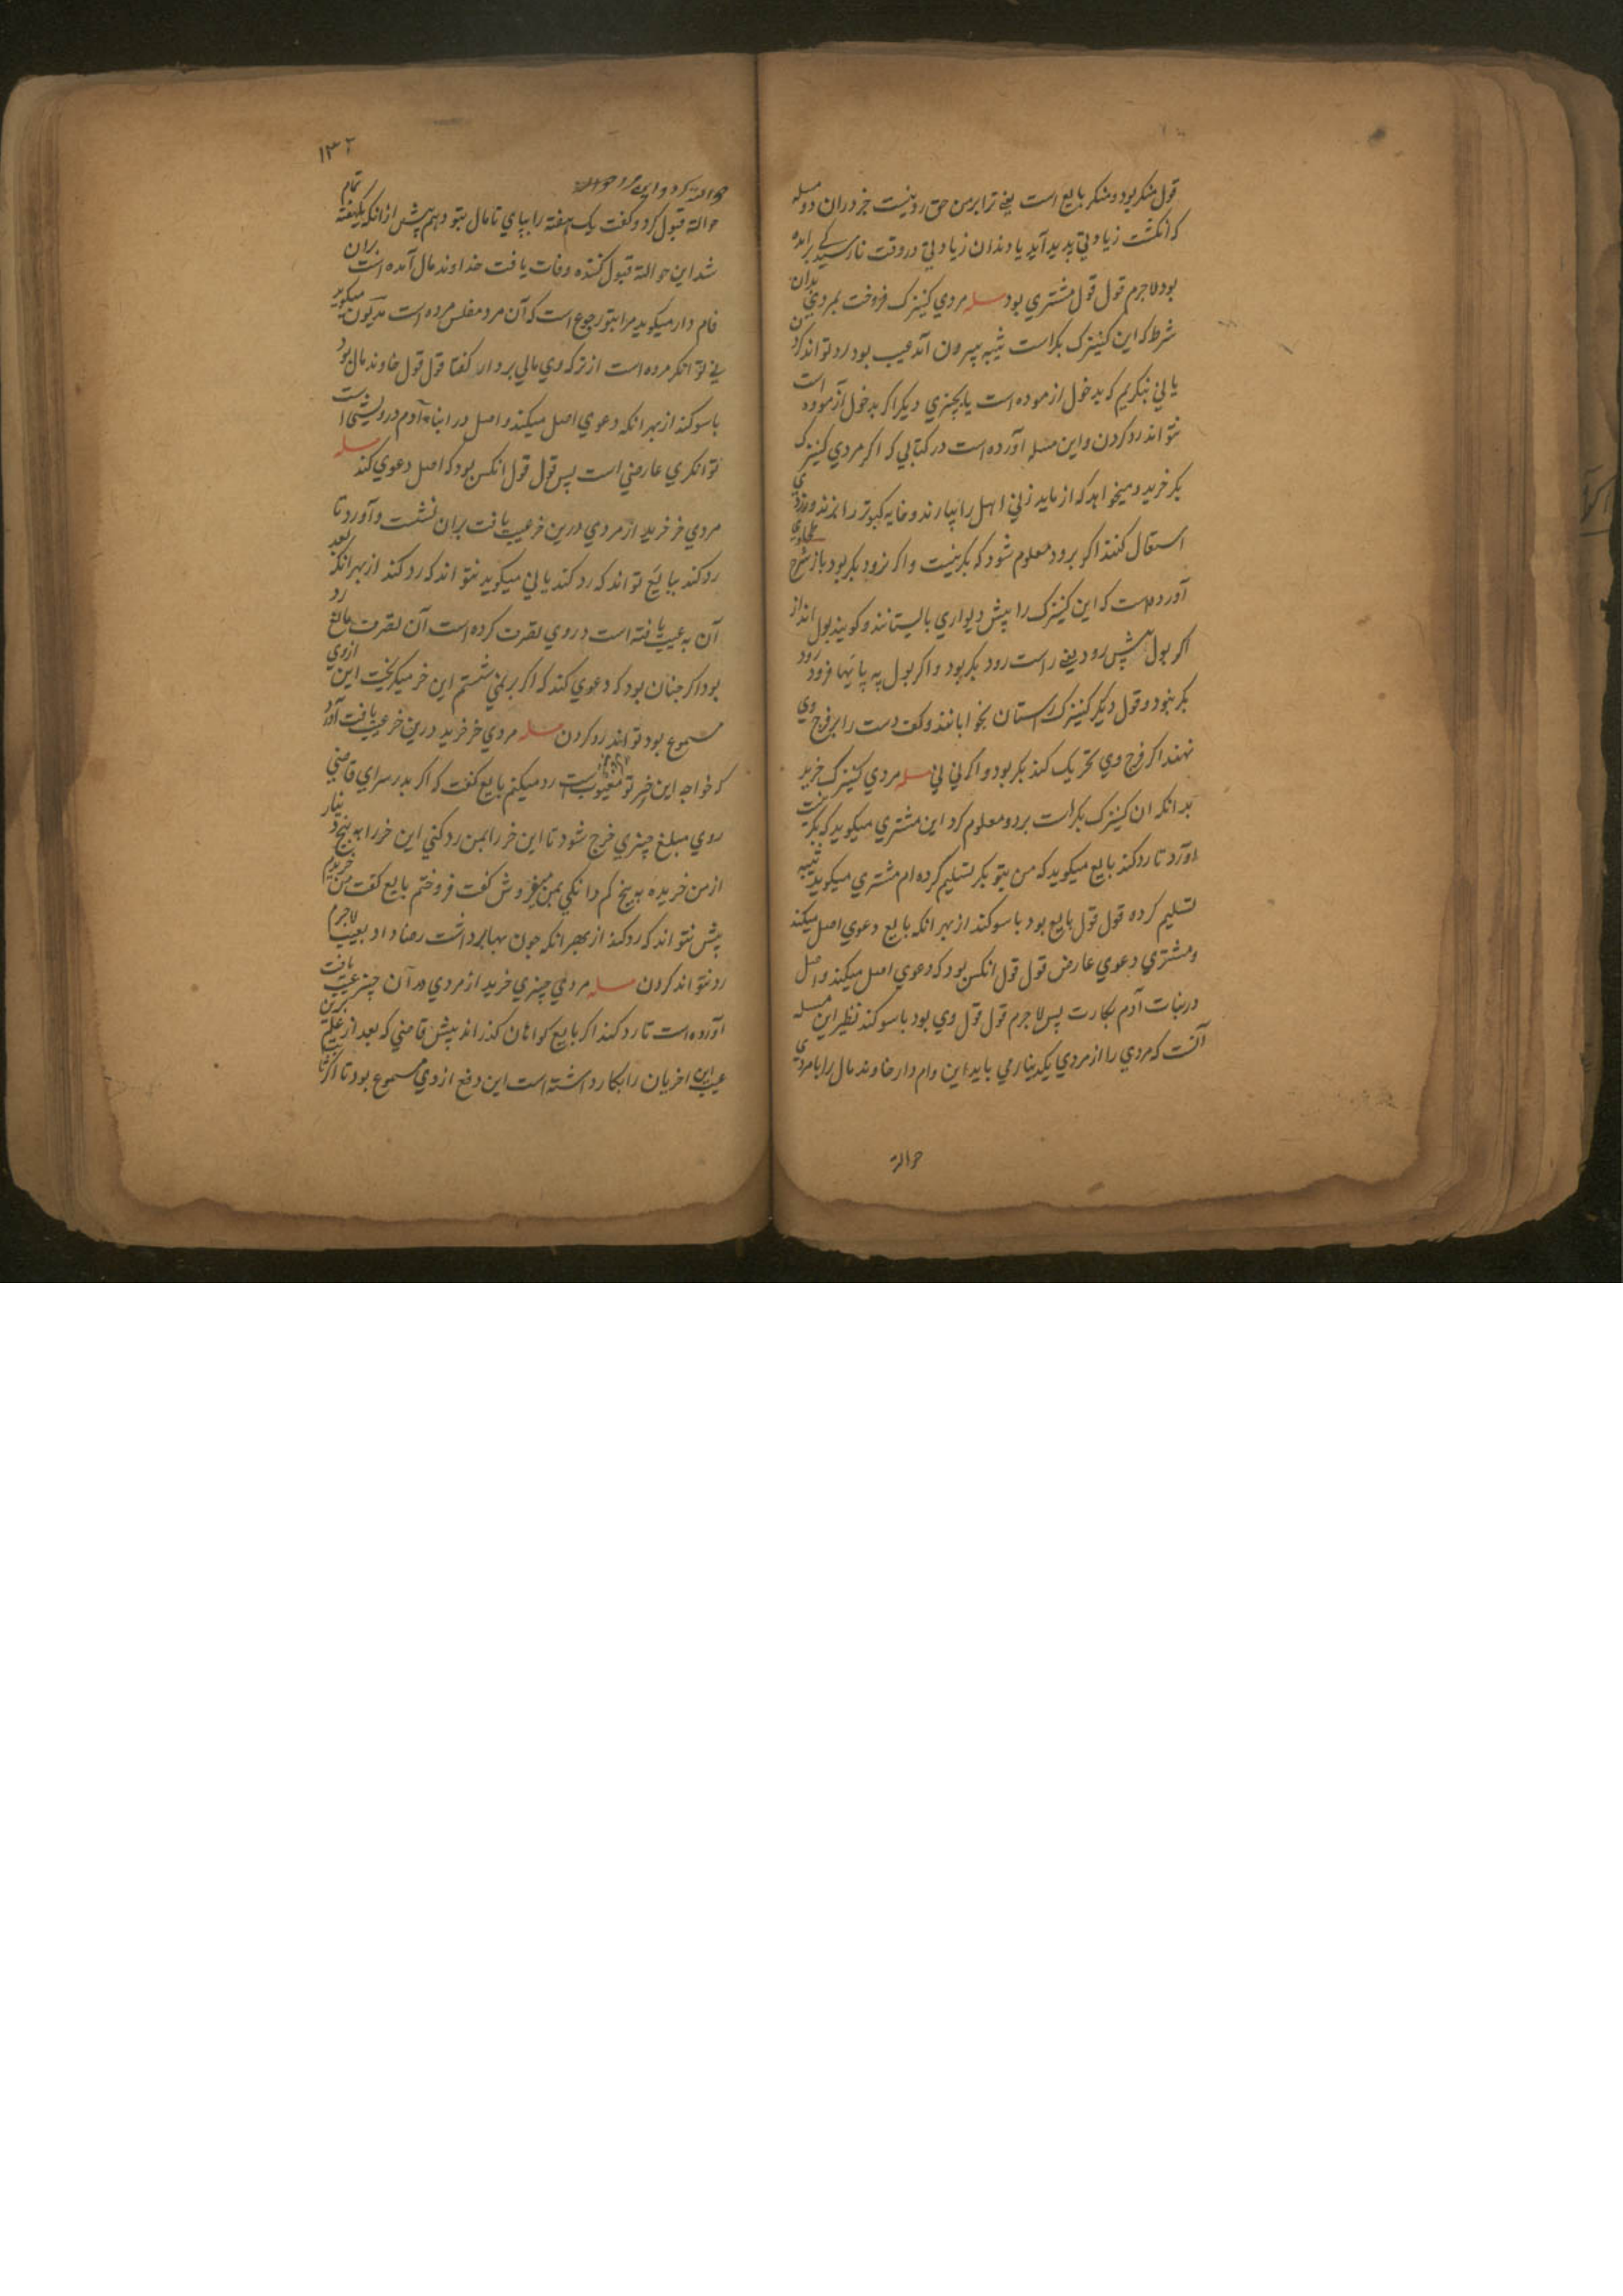 قول منکر بود و منکر بایع است یعنی ترا بر من حق رد نیست جز در ان دو مسله
که انکشت زیادتی پدید آید یا دندان زیادتی در وقت نارسیدکی برامده
بود لاجرم قول قول مشتری بود مسله مردی کنیزک فروخت بمردی بدان
شرط که این کنیزک بکر است ثیبه بیرون آمد عیب بود رد تواند کردن
یا نی بنکریم که بدخول ازموده است یا بچیزی دیکر اکر بدخول آزموده است
نتواند رد کردن و این مسله آورده است در کتابی که اکر مردی کنیزک
بکر خرید و میخواهد که ازماید زنی اهل را بیارند و خایه کبوتر را
استقال کنند اکر برود معلوم شود که بکر نیست و اکر نرود بکر بود باز شرح طحاوی
آورده است که این کنیزک را پیش دیواری بایستانند و کویند بول انداز
اکر بول پیش رود یعنی راست رود بکر بود و اکر بول به پایها فرود رود
بکر نبود و قول دیکر کنیزک را ستان بخوابانند و کف دست را بر فرج وی
نهند اکر فرج وی تحریک کند بکر بود و اکر نی نی مسله مردی کنیزک خرید
بدانکه ان کنیزک بکر است برد و معلوم کرد این مشتری میکوید که بکر نیست
اورد تا رد کند بایع میکوید که من بتو بکر تسلیم کرده ام مشتری میکوید ثیبه
تسلیم کرده قول قول بایع بود با سوکند از بهر انکه بایع دعوی اصل میکند
و مشتری دعوی عارض قول قول انکس بود که دعوی اصل میکند و اصل
در بنات آدم بکارت پس لاجرم قول قول وی بود با سوکند نظیر این مسله
آنست که مردی را از مردی یکدیناری باید این وام دار خاوند مال را بامردی
حوالة
۱۳۲
حوالة کرد و این مرد حوالة
حوالة قبول کرد و کفت یک هفته را بپای تا مال بتو دهم پیش از انکه یکهفته تمام
شد این حوالة قبول کننده وفات یافت خداوند مال آمده است بران
فام دار میکوید مرا بتو رجوع است که آن مرد مفلس مرده است مدیون میکوید
نی توانکر مرده است از ترکه وی مالی بردار کفتا قول قول خاوند مال بود
با سوکند از بهر انکه دعوی اصل میکند و اصل در ابناء آدم درویشی است
توانکری عارضی است پس قول قول انکس بود که اصل دعوی کند مسله
مردی خر خرید از مردی درین خر عیب یافت بران نشست و آورد تا
رد کند ببایع تواند که رد کند یا نی میکوید نتواند که رد کند از بهر انکه بعد
آن به عیب یافته است در وی تصرف کرده است آن تصرف مانع رد
بود اکر چنان بود که دعوی کند که اکر بر نمی نشستم این خر میکریخت این ازوی
مسموع بود تواند رد کردن مسله مردی خر خرید درین خر عیب یافت آورد
که خواجه این خر تو معیوب است رد میکنم بایع کفت که اکر بدر سرای قاضی
روی مبلغ چیزی خرج شود تا این خر را بمن رد کنی این خر را به پنج دینار
از من خریده به پنج کم دانکی بمن بفروش کفت فروختم بایع کفت من خریدم
پیش نتواند که رد کند از بهر انکه چون بها برداشت رضا داد بعیب لاجرم
رد نتواند کردن مسله مردی چیزی خرید از مردی در آن چیز عیب یافت
آورده است تا رد کند اکر بایع کواهان کذراند پیش قاضی که بعد از علم برین
عیب این اخریان را بکار داشته است این دفع از وی مسموع بود تا اکر